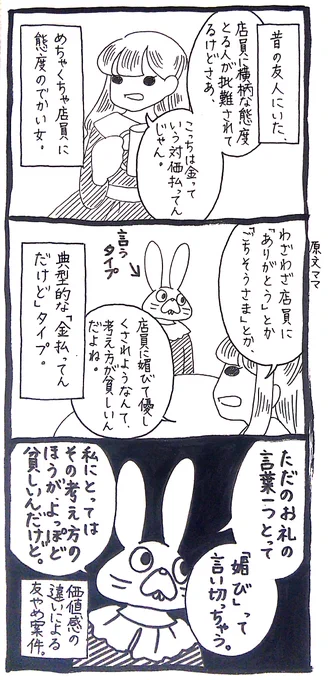 昔の友人にいた、
めちゃくちゃ店員に
態度のでかい女。
店員に横柄な態度
とる人が批難されて
るけどさあ、
こっちは金って
いう対価払ってん
じゃん。
原文ママ
わざわざ店員に
「ありがとう」とか
「ごちそうさま」とか、
言う
タイプ
店員に媚びて優し
くされようなんて、
考え方が貧しいん
だよね。
典型的な「金払ってん
だけど」タイプ。
ただのお礼の
言葉一つとって
「媚び」って
言い切っちゃう。
私にとっては
その考え方の
ほうがよっぽど
貧しいんだけど。
価値感の
違いによる
友やめ案件